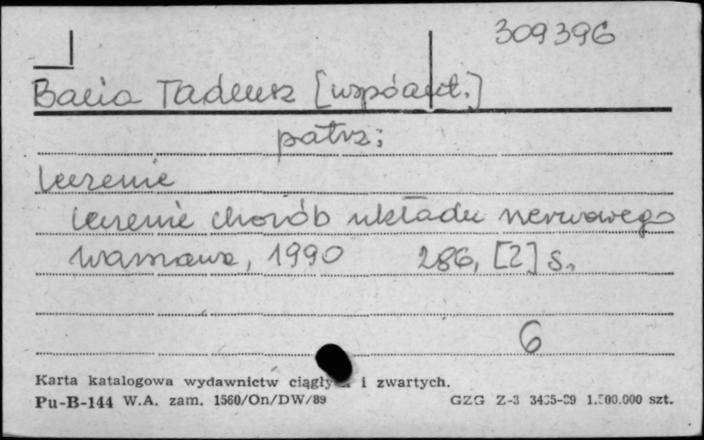 309396
Bacia Tadeusz [współaut.]
patrz:
Leczenie
Leczenie chorób układu nerwowego
Warszawa, 1990 286, [2] s.
6
Karta katalogowa wydawnictw i zwartych.
Pu-B-144 W.A. zam. 1560/On/DW/89 GZG Z-3